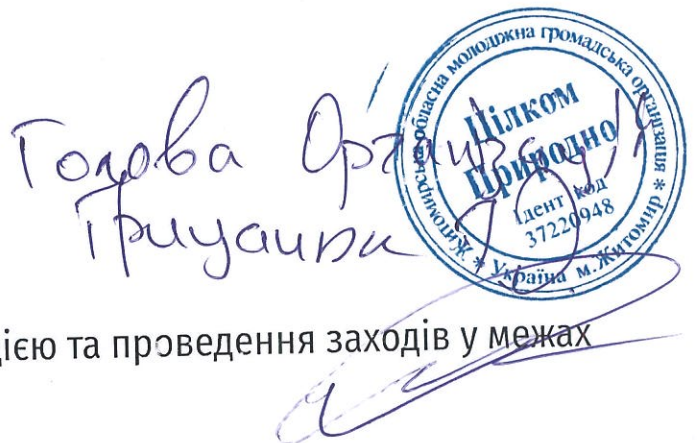 Голова Організації
Грицанюк
Житомирська обласна молодіжна громадська організація * Україна м.Житомир *
Цілком
Природно
Ідент код
37220948
ією та проведення заходів у межах